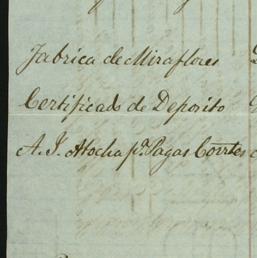 Fabrica de Miraflores
Certificado de Deposito
A. J. Atocha pr. Pagas Corrtes